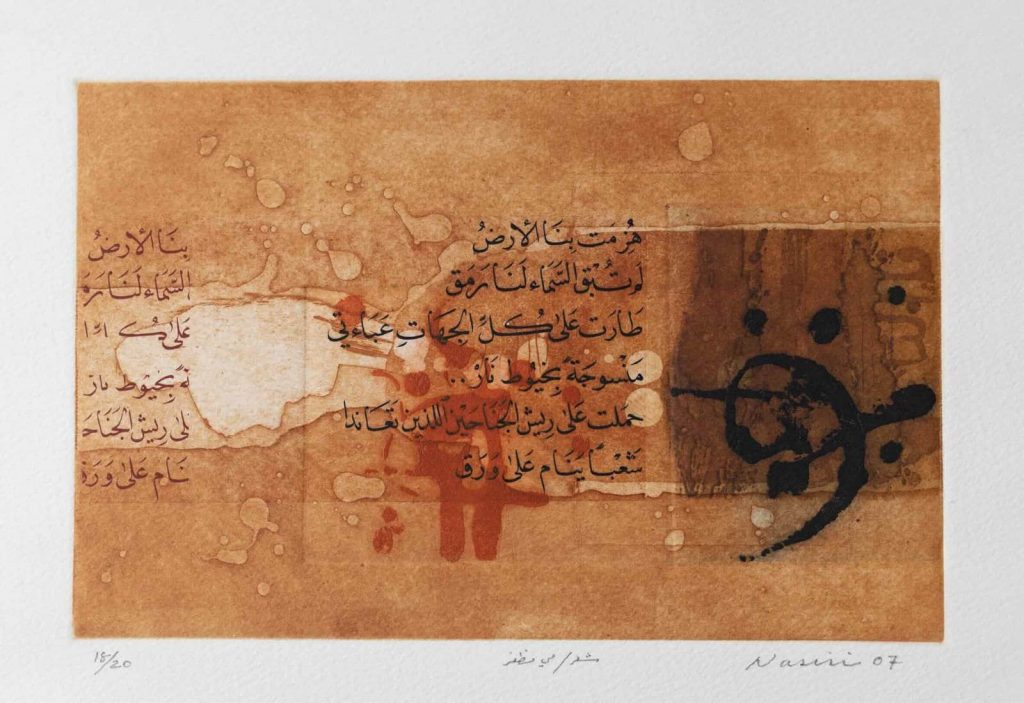 هُزِمَت بِنَا الأَرضُ
لَم تُبْقِ السَّمَاء لَنَا رَمَق
طَارَت عَلىٰ كُلِّ الجِهَاتِ عَبَاءَتي
مَنْسوجَةً بِخيُوط نَارْ..
حَملت عَلىٰ رِيشِ الجَنَاحَيْن اللذين تَعَاندا
شَعْباً يَنَام عَلىٰ وَرَق
بِنَا الأَرضُ
السَّمَاء لَنَا رَمَ
عَلىٰ كُ
ةً بِخيُوط نار
لىٰ رِيشِ الجَنَاحَ
نَام عَلىٰ وَرَق
18/20
شعر / مي مظفر
Nasiri 07